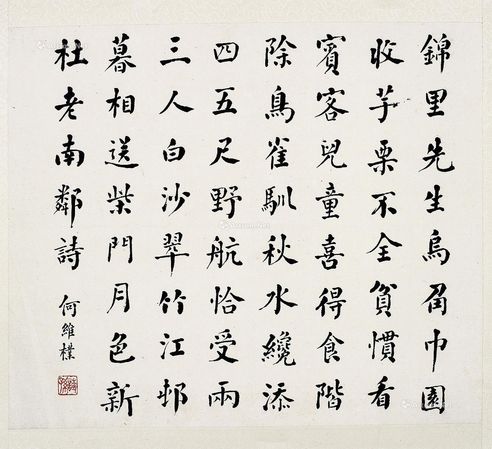 錦里先生烏角巾園
收芋栗不全貧慣看
賓客兒童喜得食階
除鳥雀馴秋水纔添
四五尺野航恰受兩
三人白沙翠竹江邨
暮相送柴門月色新
杜老南鄰詩
何維樸